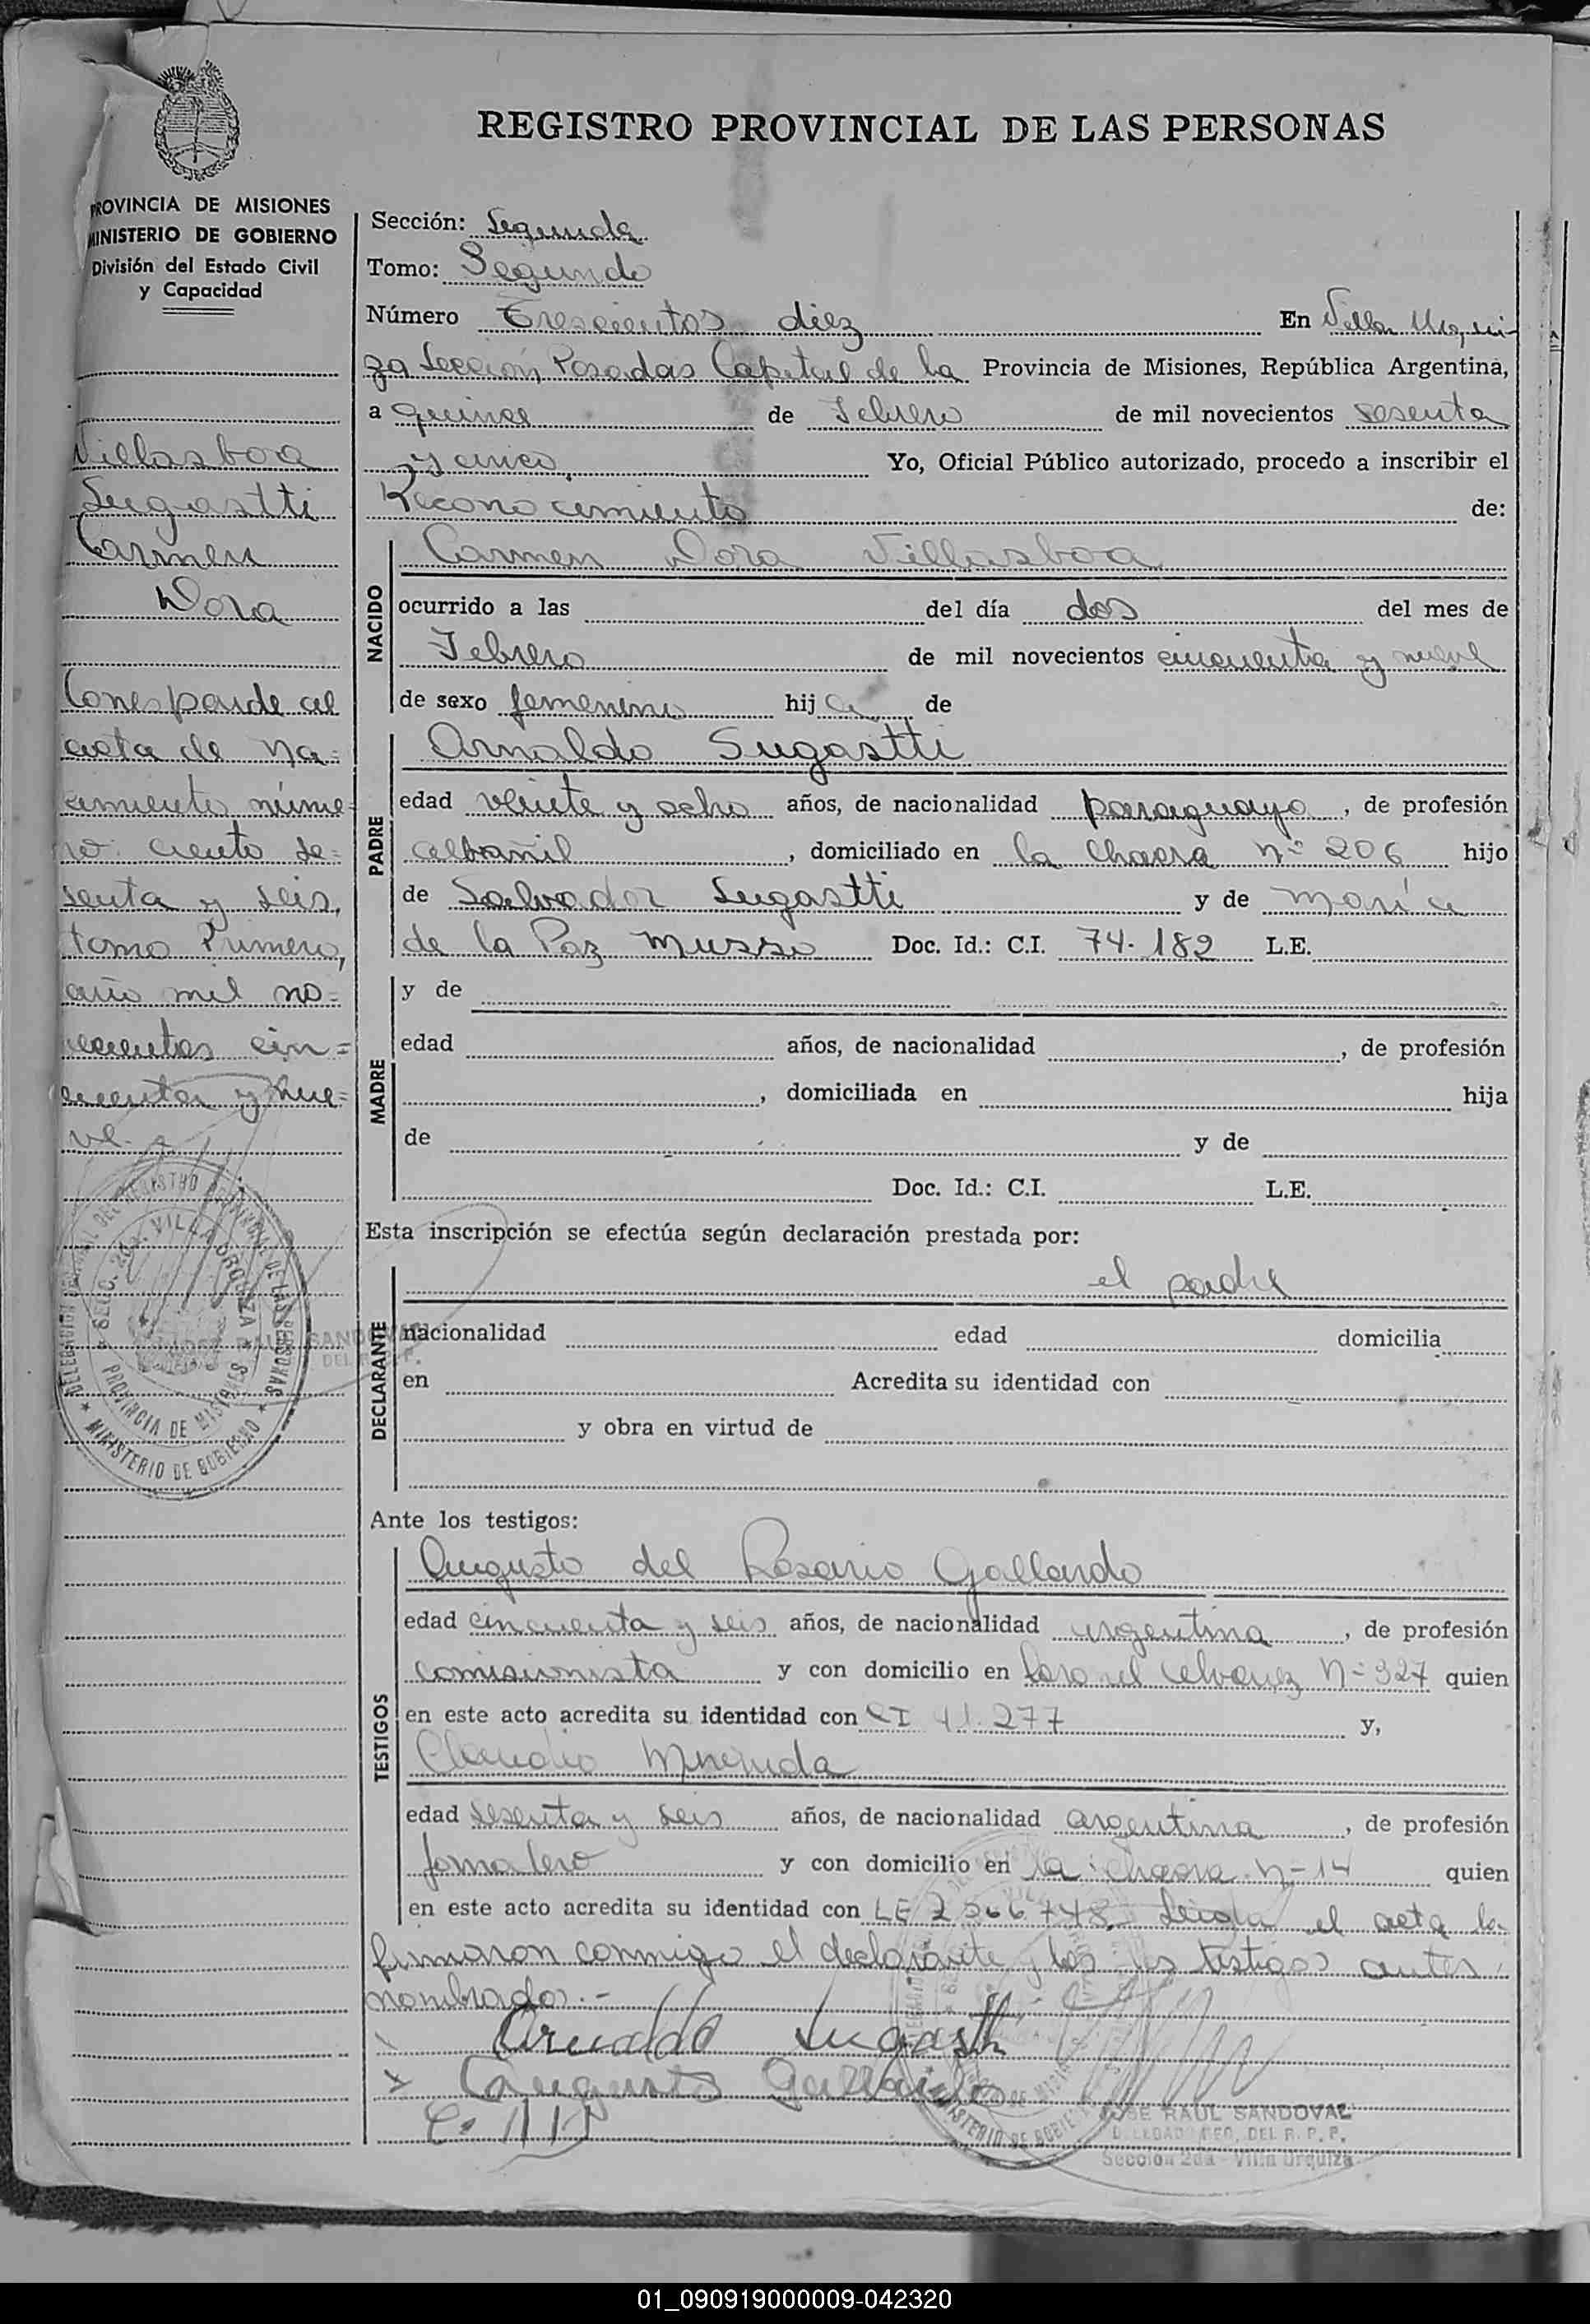 REGISTRO PROVINCIAL DE LAS PERSONAS
PROVINCIA DE MISIONES
MINISTERIO DE GOBIERNO
División del Estado Civil
y Capacidad
Villasboa
Sugastti
Carmen
Dora
Corresponde al
acta de na=
cimiento núme=
ro ciento se=
senta y seis,
tomo Primero,
año mil no=
vecientos cin=
cuenta y nue=
ve.
DELEGACION DEL REGISTRO PROVINCIAL DE LAS PERSONAS
SECC. 2da. VILLA URQUIZA
PROVINCIA DE MISIONES
MINISTERIO DE GOBIERNO
RAUL SANDOVAL
Sección: Segunda
Tomo: Segundo
Número Trescientos diez En Villa Urqui-
za Sección Posadas Capital de la Provincia de Misiones, República Argentina,
a quince de Febrero de mil novecientos sesenta
y cinco Yo, Oficial Público autorizado, procedo a inscribir el
Reconocimiento de:
NACIDO
Carmen Dora Villasboa
ocurrido a las del día dos del mes de
Febrero de mil novecientos cincuenta y nueve
de sexo femenino hija de
PADRE
Arnaldo Sugastti
edad veinte y ocho años, de nacionalidad paraguayo, de profesión
albañil, domiciliado en la Chacra Nº 206 hijo
de Salvador Sugastti y de María
de la Paz Musso Doc. Id.: C.I. 74.189 L.E.
MADRE
y de
edad años, de nacionalidad , de profesión
, domiciliada en hija
de y de
Doc. Id.: C.I. L.E.
Esta inscripción se efectúa según declaración prestada por:
DECLARANTE
el padre
nacionalidad edad domicilia
en Acredita su identidad con
y obra en virtud de
Ante los testigos:
TESTIGOS
Augusto del Rosario Gallardo
edad cincuenta y seis años, de nacionalidad argentina, de profesión
comisionista y con domicilio en Coronel Alvarez Nº 327 quien
en este acto acredita su identidad con CI 41.277 y,
Claudio
edad sesenta y seis años, de nacionalidad argentina, de profesión
jornalero y con domicilio en la Chacra N-14 quien
en este acto acredita su identidad con LE 2566748. Leida el acta la
firmaron conmigo el declarante y los testigos antes
nombrados.-
Arnaldo Sugastti
Augusto Gallardo
JOSE RAUL SANDOVAL
DELEGADO REG. DEL R. P. P.
Sección 2da - Villa Urquiza
01_090919000009-042320